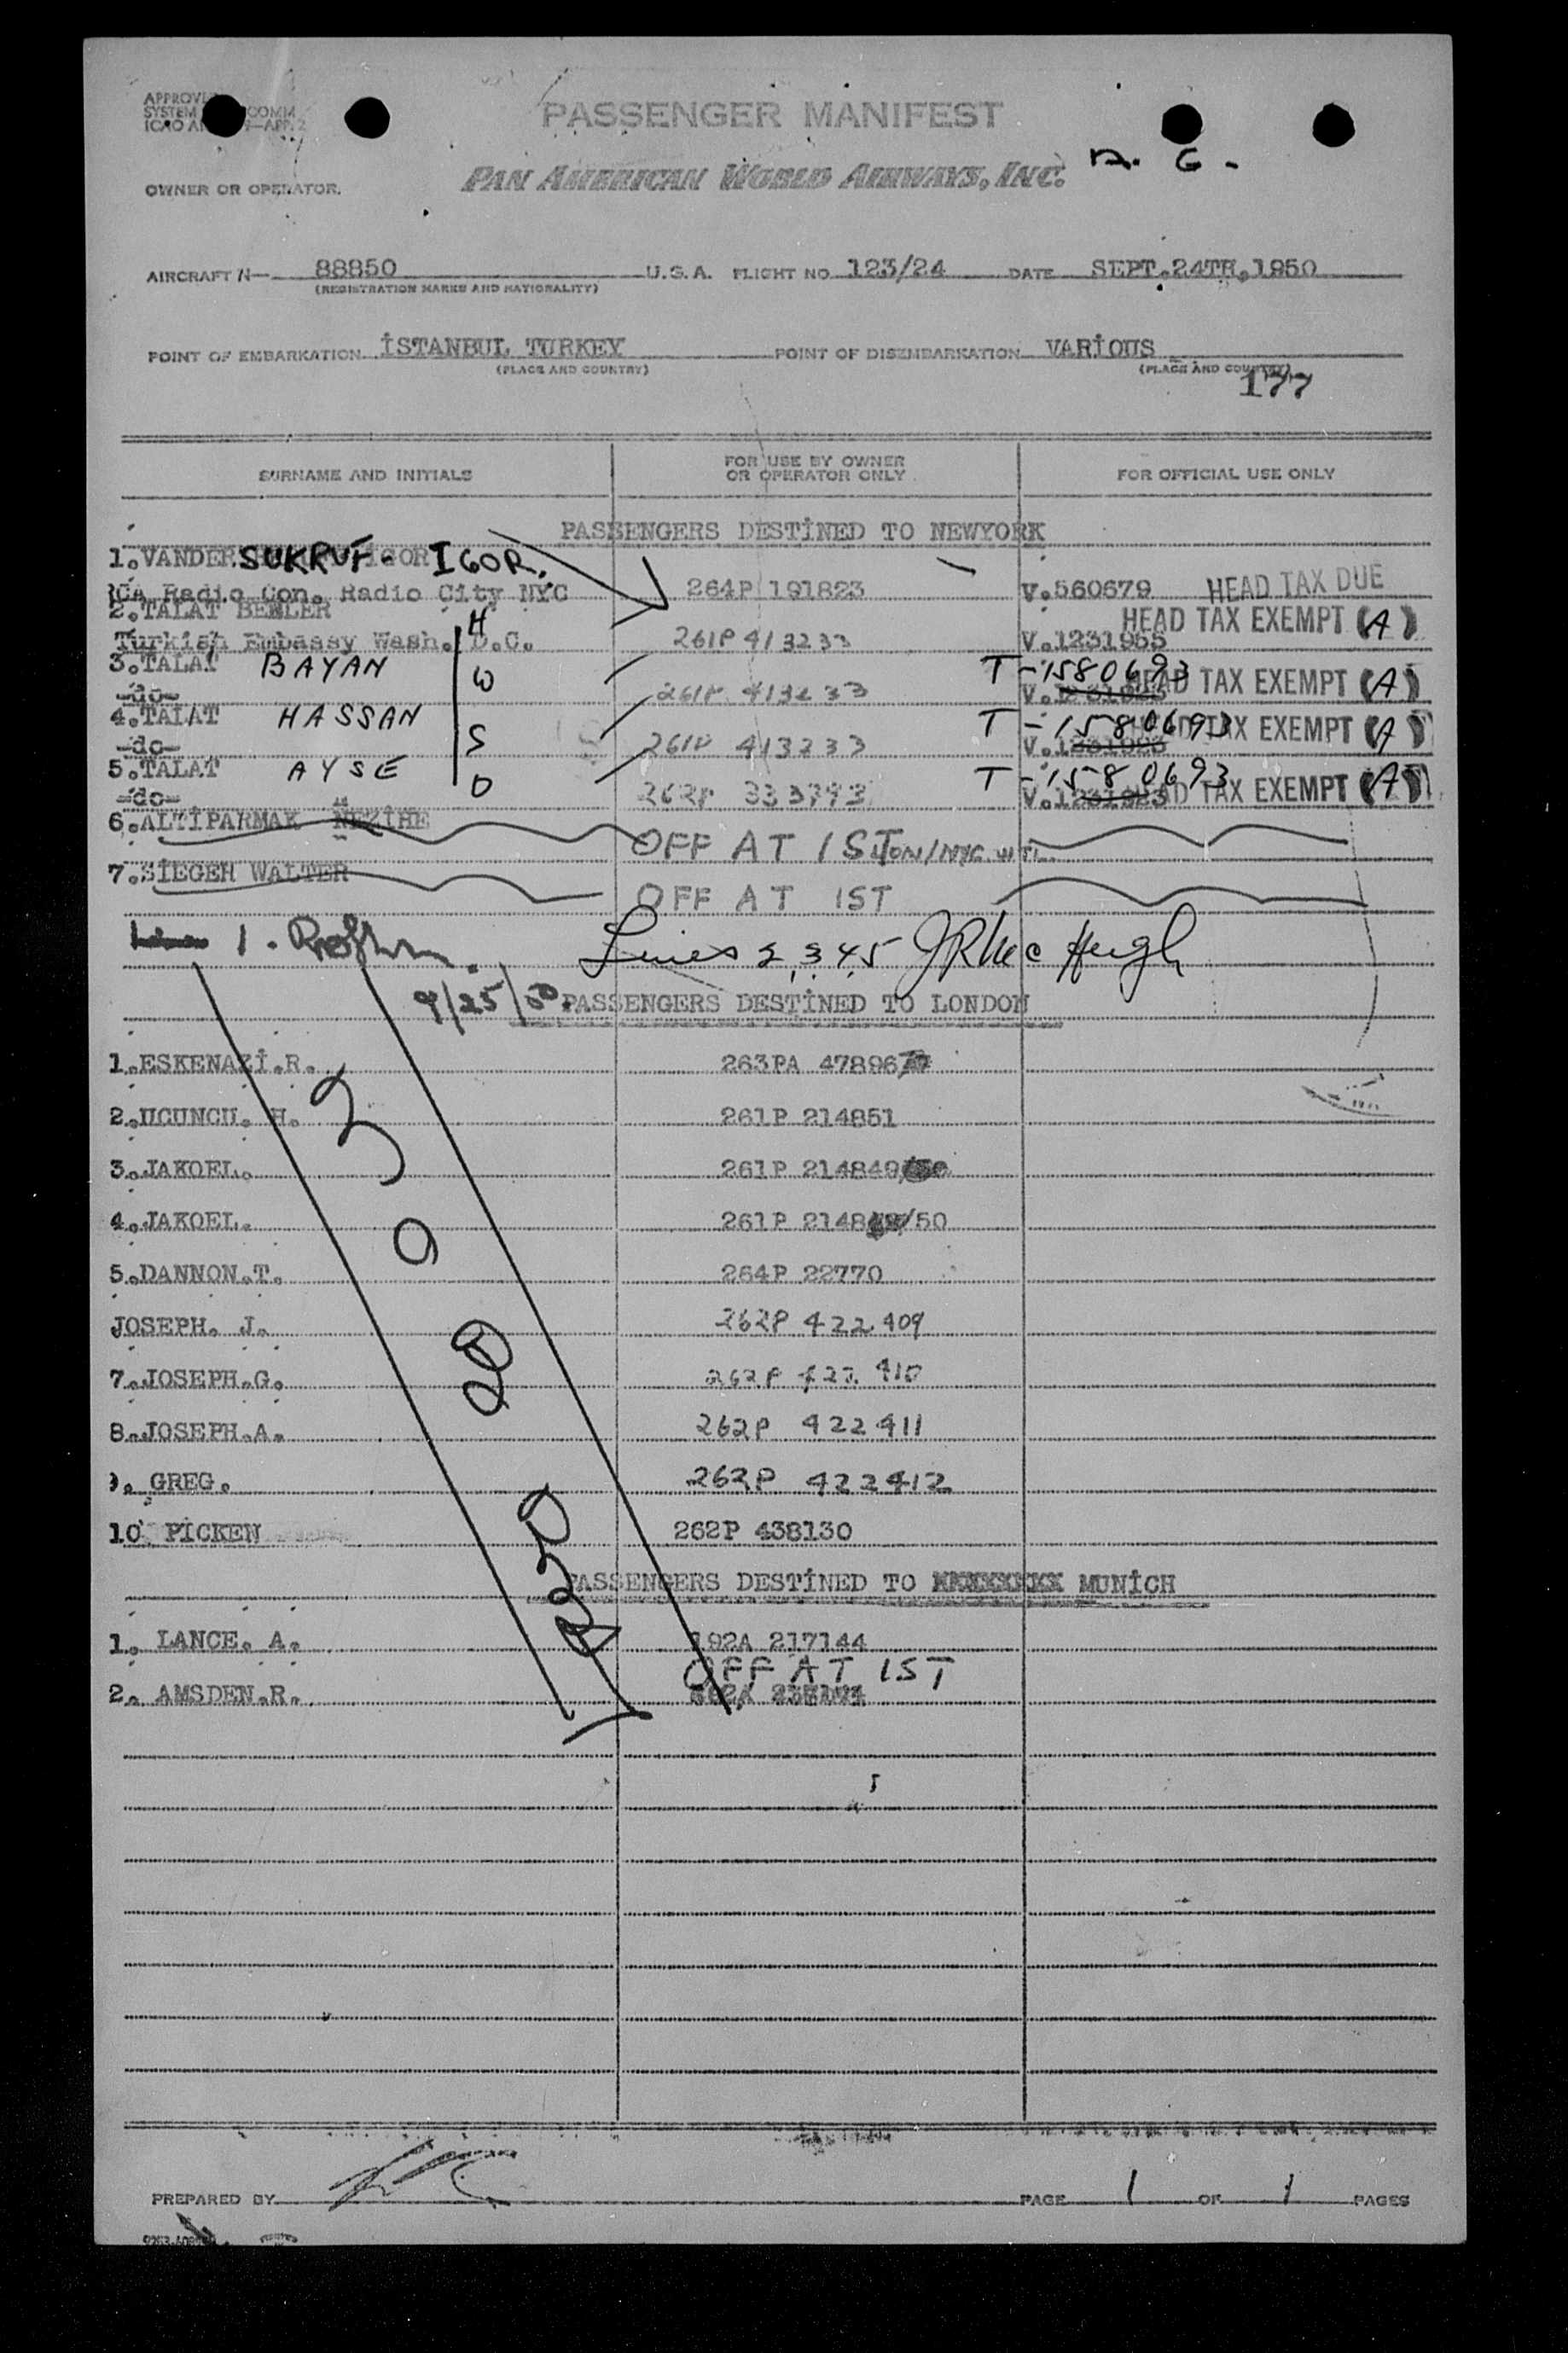 PASSENGER MANIFEST
OWNER OR OPERATOR.
PAN AMERICAN WORLD AIRWAYS, INC.
AIRCRAFT N— 88850 U.S.A. FLIGHT NO 123/24 DATE SEPT.24TH.1950
(REGISTRATION MARKS AND NATIONALITY)
POINT OF EMBARKATION İSTANBUL TURKEY POINT OF DISEMBARKATION VARİOUS
(PLACE AND COUNTRY) (PLACE AND COUNTRY)
177
SURNAME AND INITIALS FOR USE BY OWNER OR OPERATOR ONLY FOR OFFICIAL USE ONLY
PASSENGERS DESTİNED TO NEWYORK
1.VANDER IGOR.
Radio City NYC 264P 191823 V.560679 HEAD TAX DUE
2.TALAT BENLER H HEAD TAX EXEMPT (A)
Turkish Embassy Wash. D.C. 261P 413233 V.1231955
3.TALAT BAYAN W T-1580693 HEAD TAX EXEMPT (A)
-do- 261P 413233
4.TALAT HASSAN S T-1580693 TAX EXEMPT (A)
-do- 261P 413233
5.TALAT AYSE D T-1580693 TAX EXEMPT (A)
-do- 262P 333793
6.ALTİPARMAK NEZİHE OFF AT IST
7.SİEGER WALTER OFF AT IST
1. Lines 2,3,4,5 JR McHugh
9/25/50
PASSENGERS DESTİNED TO LONDON
1.ESKENAZİ.R. 263PA 47896
2.UCUNCU. H. 261P 214851
3.JAKOEL. 261P 214849
4.JAKOEL. 261P 2148 /50
5.DANNON.T. 264P 22770
JOSEPH. J. 262P 422409
7.JOSEPH.G. 262P 422 410
8.JOSEPH.A. 262P 422411
9. GREG. 262P 422412
10 PİCKEN 262P 438130
PASSENGERS DESTİNED TO MUNİCH
1. LANCE. A. 192A 217144
OFF AT IST
2. AMSDEN.R.
PREPARED BY PAGE 1 OF 1 PAGES